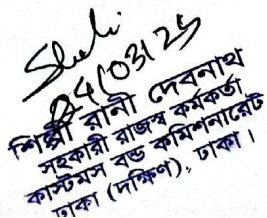 04/03/25
শিল্পী রানী দেবনাথ
সহকারী রাজস্ব কর্মকর্তা
কাস্টমস বন্ড কমিশনারেট
ঢাকা (দক্ষিণ), ঢাকা।